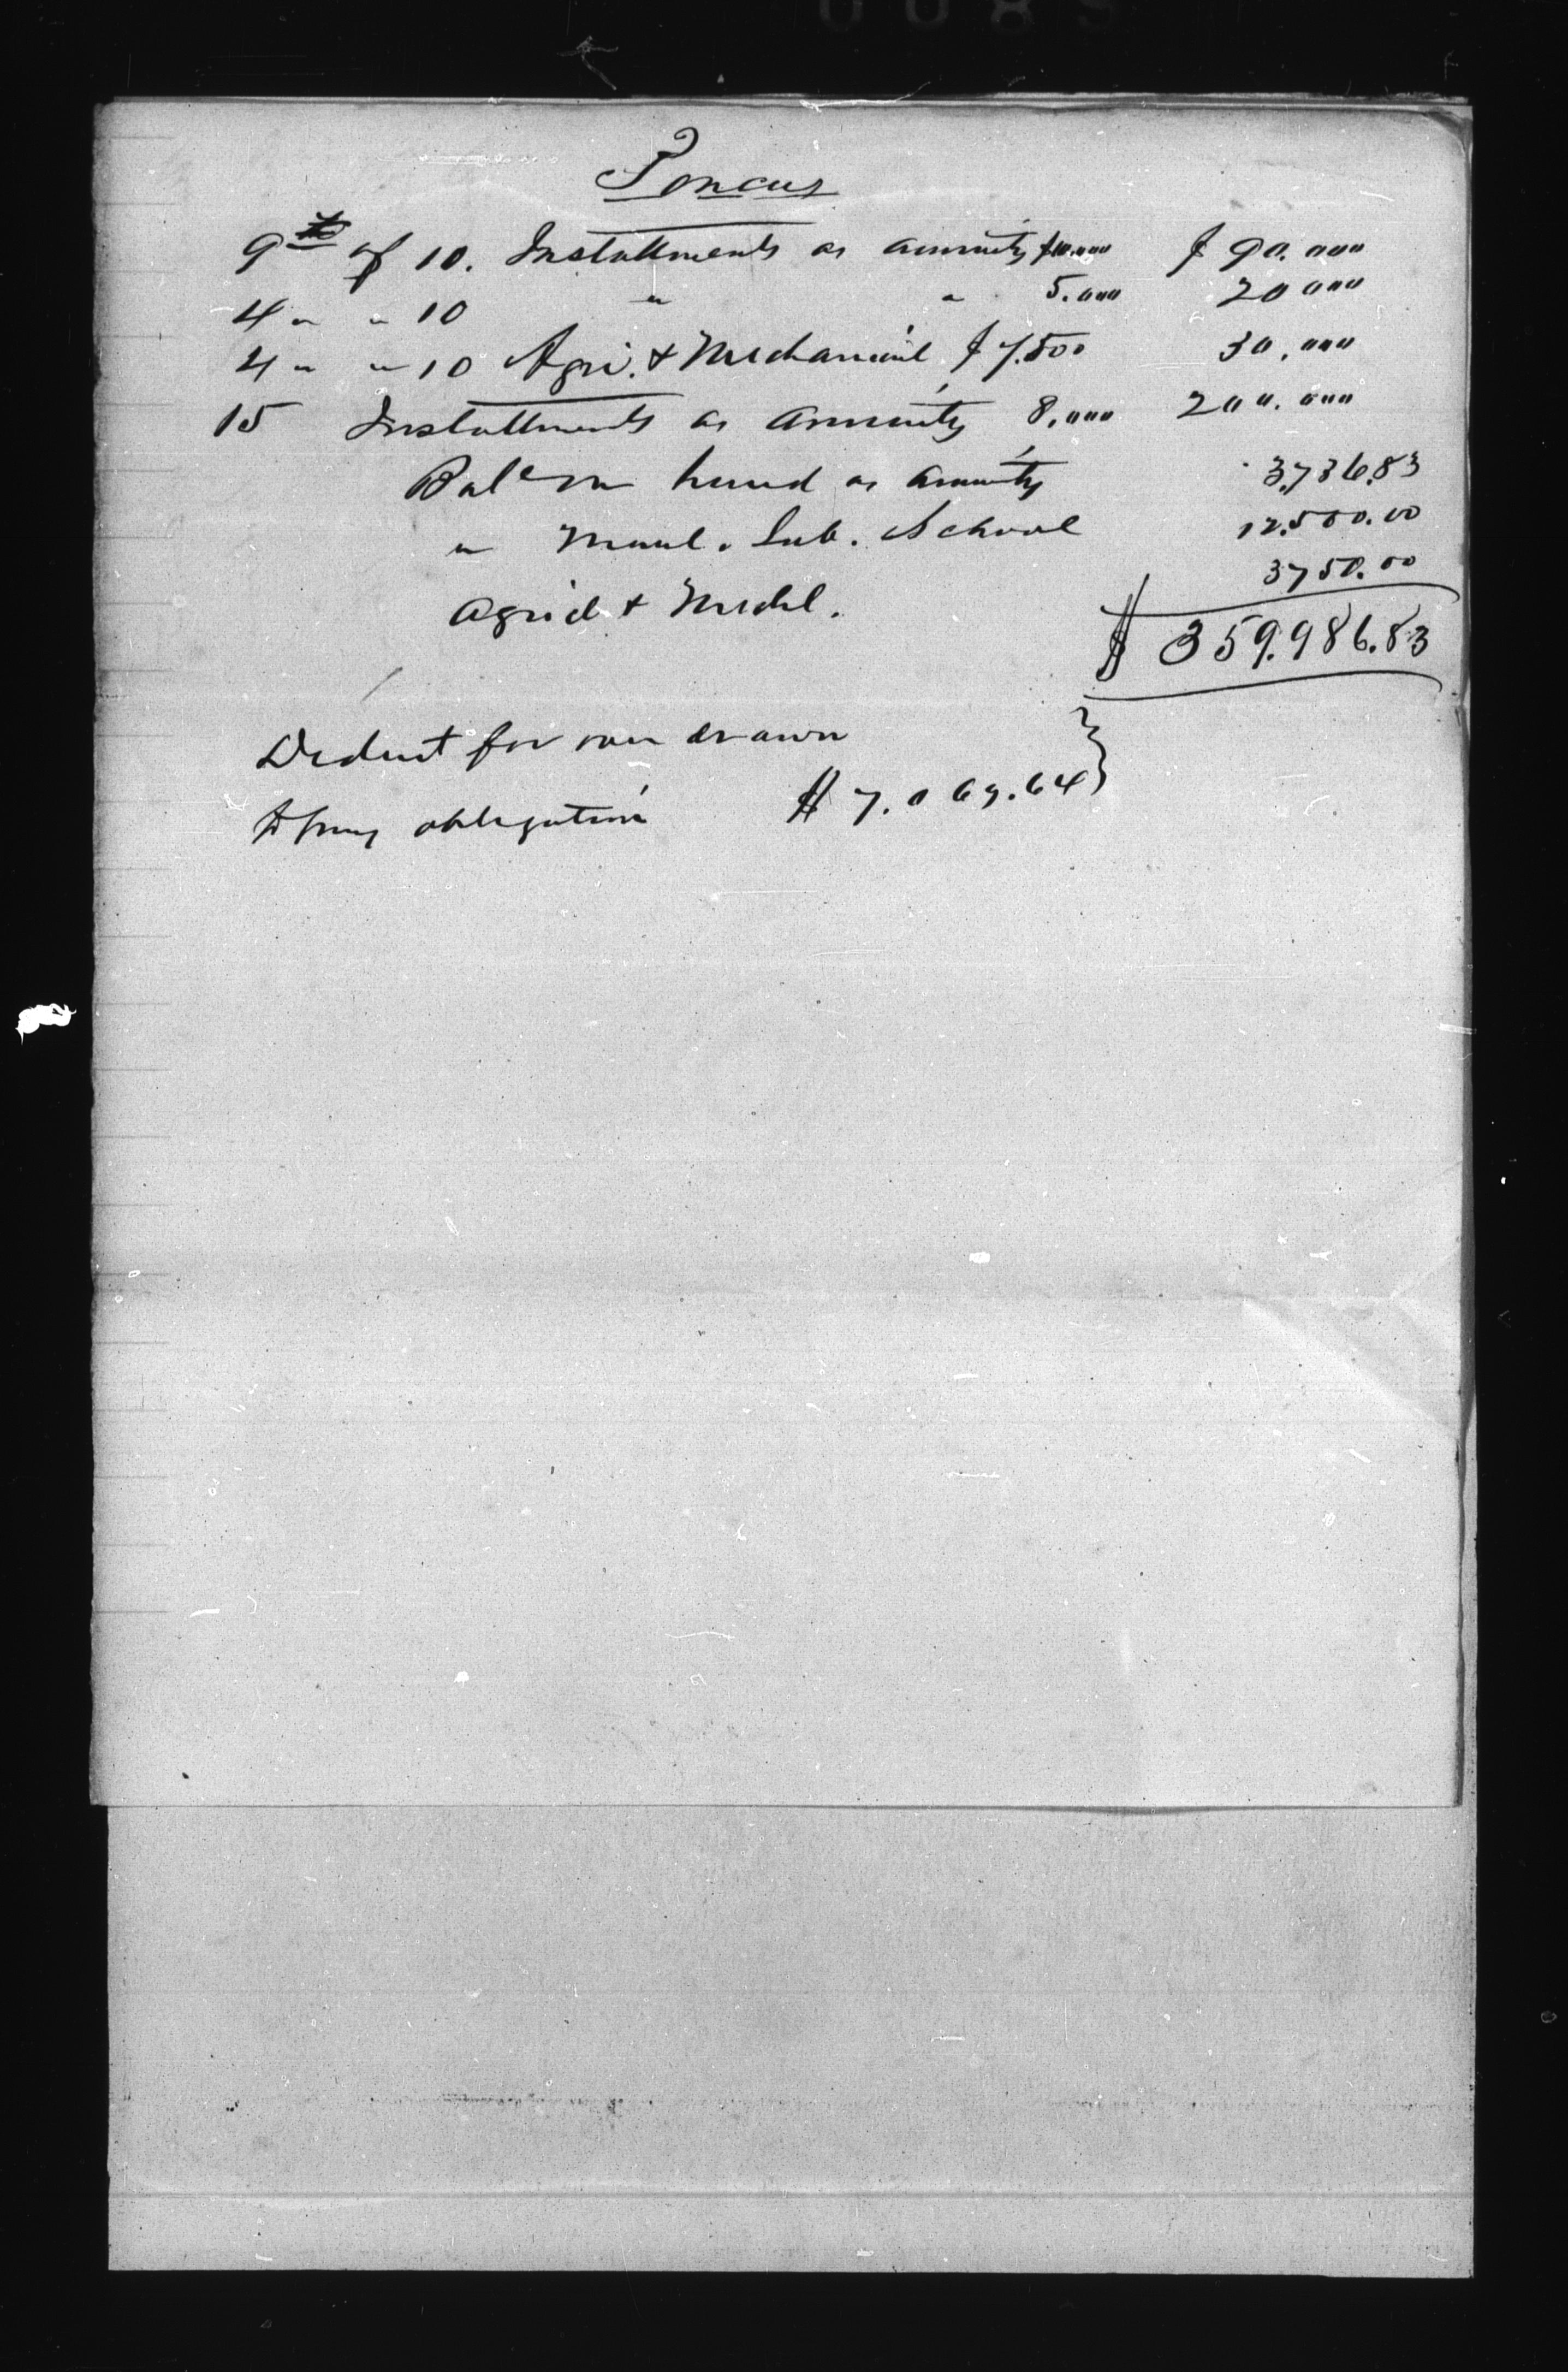 Poncas
9th of 10. Installments as annuity $10.000 $90.000
4 " " 10 " " 5.000 20 000
4 " " 10 Agri. & Mechanical $7.500 30.000
15 Installments as annuity 8.000 200.000
Bale on hand as annuity 3,736.83
" Manl. Lab. School 12.500.00
Agricl & Mechl. 3750.00
$359.986.83
Deduct for over drawn
& obligation $7.069.64